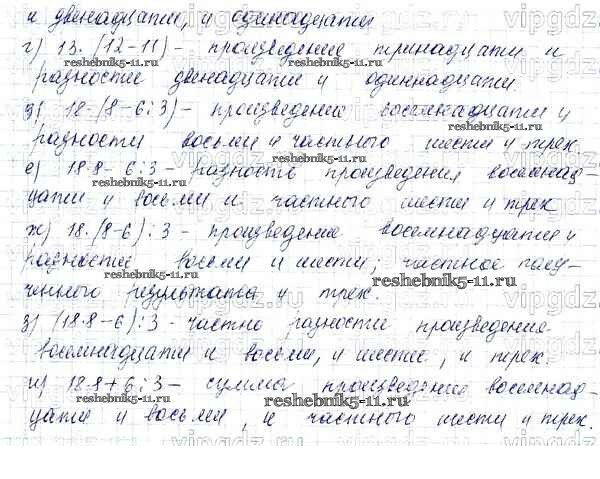 и двенадцати, и одинадцати
г) 13·(12-11) - произведение тринадцати и
разности двенадцати и одиннадцати.
д) 18·(8-6:3) - произведение восемнадцати и
разности восьми и частного шести и трех
е) 18·8-6:3 - разность произведения восемнад-
цати и восьми и частного шести и трех
ж) 18·(8-6):3 - произведение восемнадцати и
разности восьми и шести; частное полу-
ченного результата и трех.
з) (18·8-6):3 - частно разности произведения
восемнадцати и восьми, и шести, и трех.
и) 18·8+6:3 - сумма произведение восемнад-
цати и восьми, и частного шести и трех.
reshebnik5-11.ru
vipgdz